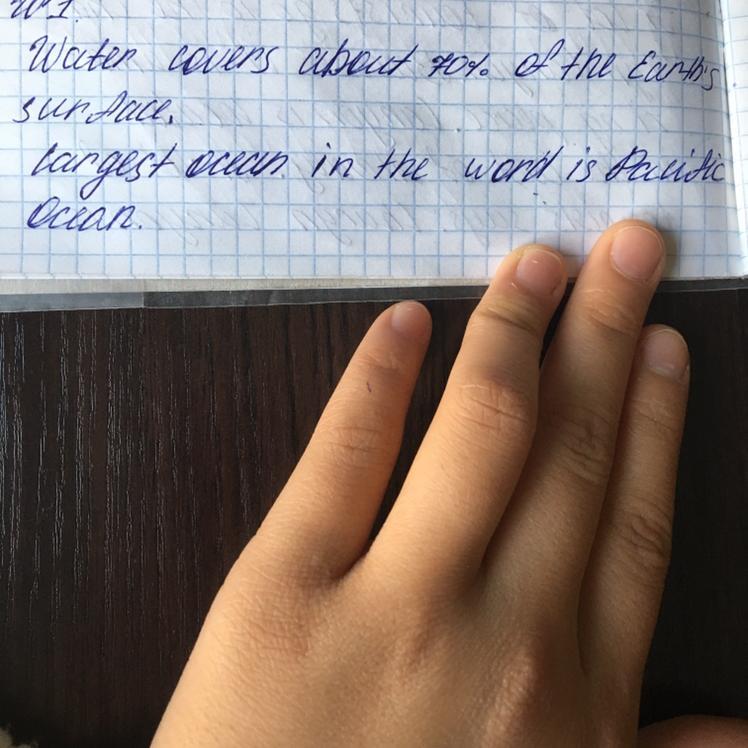 №1.
Water covers about 70% of the Earth's
surface.
largest ocean in the word is Pacific
Ocean.